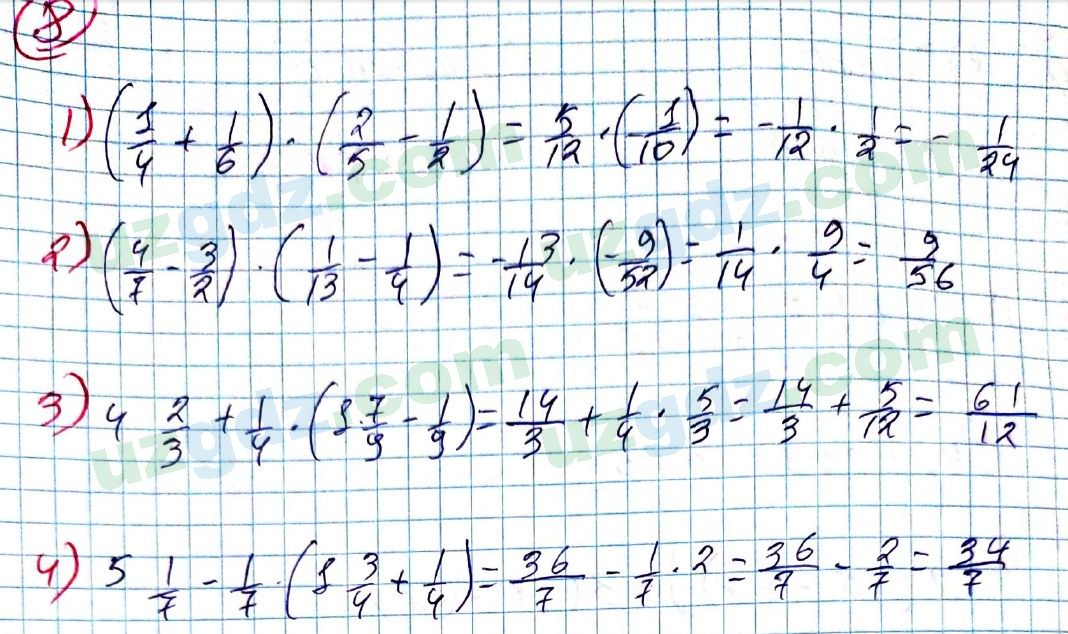 8
1) (1/4 + 1/6) · (2/5 - 1/2) = 5/12 · (-1/10) = -1/12 · 1/2 = -1/24
2) (4/7 - 3/2) · (1/13 - 1/4) = -13/14 · (-9/52) = 1/14 · 9/4 = 9/56
3) 4 2/3 + 1/4 · (1 7/9 - 1/9) = 14/3 + 1/4 · 5/3 = 14/3 + 5/12 = 61/12
4) 5 1/7 - 1/7 · (1 3/4 + 1/4) = 36/7 - 1/7 · 2 = 36/7 - 2/7 = 34/7
uzgdz.com
uzgdz.com
uzgdz.com
uzgdz.com